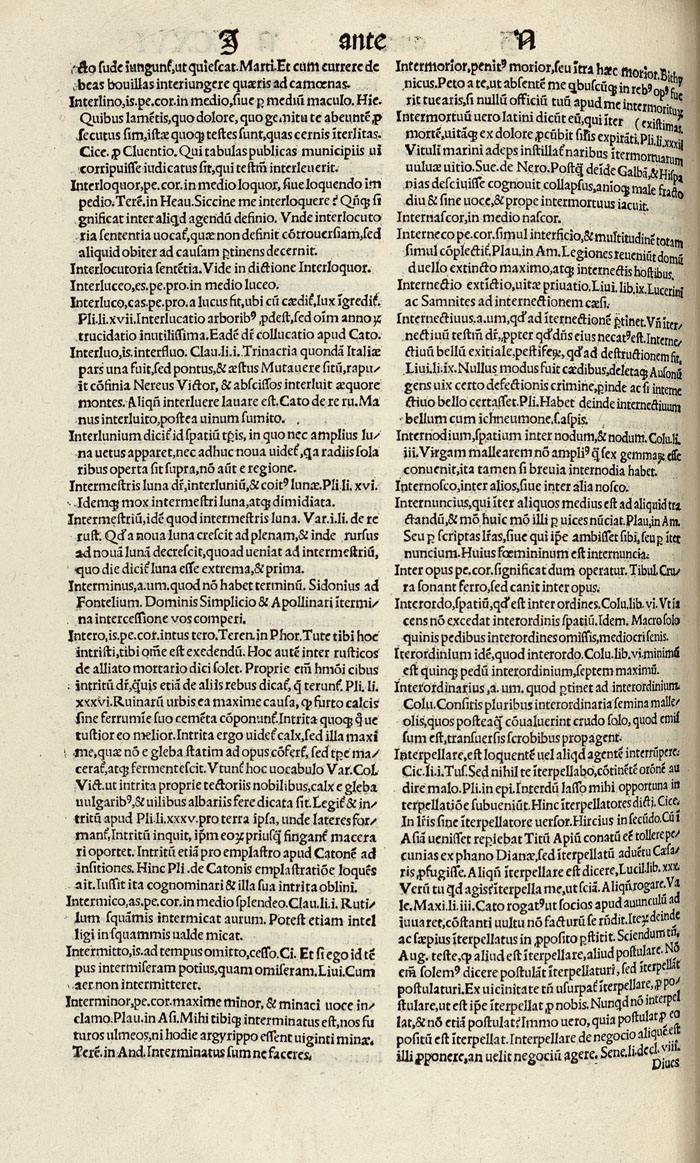 I ante N
cto sude iungunt̃,ut quiescat.Marti.Et cum currere de
beas bouillas interiungere quæris ad camœnas.
Interlino,is.pe.cor.in medio,siue ꝑ mediũ maculo. Hie.
Quibus lamẽtis,quo dolore, quo gemitu te abeuntẽ ꝓ
secutus sim,istæ quoqꝫ testes sunt,quas cernis ĩterlitas.
Cice.ꝓ Cluentio. Qui tabulas publicas municipiis ui
corripuisse iudicatus sit,qui testm̃ interleuerit.
Interloquor,pe.cor.in medio loquor, siue loquendo im
pedio.Terẽ.in Heau.Siccine me interloquere ẽ? Qñqꝫ si
gnificat inter aliqd agendũ definio. Vnde interlocuto
ria sententia uocat̃,quæ non definit cõtrouersiam,sed
aliquid obiter ad causam ꝑtinens decernit.
Interlocutoria sentẽtia. Vide in dictione Interloquor.
Interluceo,es.pe.pro.in medio luceo.
Interluco,cas.pe.pro. a lucus fit,ubi cũ cædit̃,lux ĩgredit̃.
Pli.li.xvii. Interlucatio arboribꝰ ,ꝓdest,sed oĩm annoꝝ
trucidatio inutilissima. Eadẽ dr̃ collucatio apud Cato.
Interluo,is.interfluo. Clau.li.i. Trinacria quondã Italiæ
pars una fuit,sed pontus,& æstus Mutauere sitũ,rapu/
it cõfinia Nereus Victor, & abscissos interluit æquore
montes. Aliqñ interluere lauare est.Cato de re ru. Ma
nus interluito,postea uinum sumito.
Interlunium dicit̃ id spatiũ tp̃is, in quo nec amplius lu/
na uetus apparet,nec adhuc noua uidet̃,qa radiis sola
ribus operta sit supra,nõ aũt e regione.
Intermestris luna dr̃,interluniũ,& coitꝰ lunæ.Pli.li. xvi.
Idemqꝫ mox intermestri luna,atqꝫ dimidiata.
Intermestriũ,idẽ quod intermestris luna. Var.i.li. de re
rust. Qd'a noua luna crescit ad plenam,& inde rursus
ad nouã lunã decrescit,quoad ueniat ad intermestriũ,
quo die dicit̃ luna esse extrema,& prima.
Interminus,a.um.quod nõ habet terminũ. Sidonius ad
Fontelium. Dominis Simplicio & Apollinari ĩtermi/
na intercessione vos comperi.
Intero,is.pe.cor.intus tero.Teren.in Phor.Tute tibi hoc
intristi,tibi om̃e est exedendũ. Hoc autẽ inter rusticos
de alliato mortario dici solet. Proprie em̃ hm̃õi cibus
intritũ dr̃,q̃uis etiã de aliis rebus dicat̃, q̃ terunt̃. Pli. li.
xxxvi.Ruinarũ urbis ea maxime causa, ꝙ furto calcis
sine ferrumie suo cemẽta cõponunt̃.Intrita quoqꝫ q̃ ue
tustior eo melior.Intrita ergo uidet̃ calx,sed illa maxi
me,quæ nõ e gleba statim ad opus cõfert̃, sed tp̃e ma/
cerat̃,atqꝫ fermentescit. Vtunt̃ hoc uocabulo Var.Col.
Vict.ut intrita proprie tectoriis nobilibus,calx e gleba
uulgaribꝰ,& uilibus albariis fere dicata sit. Legit̃ & in/
tritũ apud Pli.li.xxxv.pro terra ip̃sa, unde lateres for/
mant̃,Intritũ inquit, ip̃m eoꝝ priusq̃ fingant̃ macera
ri oportet. Intritũ etiã pro emplastro apud Catonẽ ad
insitiones. Hinc Pli .de Catonis emplastratiõe loquẽs
ait.Iussit ita cognominari & illa sua intrita oblini.
Intermico,as,pe.cor.in medio splendeo. Clau.li.i. Ruti/
lum squãmis intermicat aurum. Potest etiam intel
ligi in squammis ualde micat.
Intermitto,is.ad tempus omitto,cesso.Ci. Et si ego id tẽ
pus intermiseram potius,quam omiseram.Liui.Cum
aer non intermitteret.
Interminor,pe.cor.maxime minor, & minaci uoce in/
clamo.Plau.in Asi.Mihi tibiqꝫ interminatus est,nos fu
turos ulmeos,ni hodie argyrippo essent uiginti minæ.
Terẽ.in And.Interminatus sum ne faceres.
Intermorior,penitꝰ morior,seu ĩtra hæc morior.Bithy
nicus.Peto a te,ut absentẽ me qbuscũqꝫ in rebꝰ opꝰ fue
rit tuearis,si nullũ officiũ tuũ apud me intermoriturꝝ
Intermortuũ uero latini dicũt eũ,qui ĩter (existimat.
mortẽ,uitãqꝫ ex dolore ꝓcũbit sil̃is expirãti.Pli.li.xxxii
Vituli marini adeps instillat̃ naribus ĩtermortuarum
uuluæ uitio. Sue.de Nero. Postq̃ deĩde Galbã,& Hispa
nias desciuisse cognouit collapsus,anioqꝫ male facto
diu & sine uoce,& prope intermortuus iacuit.
Internascor,in medio nascor.
Interneco pe.cor.simul interficio,& multitudinẽ totam
simul cõplectit̃.Plau.in Am.Legiones reueniũt domũ
duello extincto maximo,atqꝫ internectis hostibus.
Internectio extĩctio,uitæ priuatio. Liui.lib.ix.Lucerini
ac Samnites ad internectionem cæsi.
Internectiuus,a.um,qd'ad iternectionẽ ꝑtinet.Vñ iter/
nectiuũ testm̃ dr̃,ꝓpter qd'dñs eius necatꝰest.Interne/
ctiuũ bellũ exitiale,pestiferꝫ, qd'ad destructionem fit.
Liui.li.ix. Nullus modus fuit cædibus,deletaqꝫ Ausonũ
gens uix certo defectionis crimine,ꝑinde ac si interne
ctiuo bello certasset.Pli.Habet deinde internectiuum
bellum cum ichneumone.s.aspis.
Internodium,spatium inter nodum,& nodum. Colu.li.
iii. Virgam mallearem nõ ampliꝰ q̃ sex gemmaꝝ esse
conuenit,ita tamen si breuia internodia habet.
Internosco,inter alios,siue inter alia nosco.
Internuncius,qui ĩter aliquos medius est ad aliquid tra
ctandũ,& mõ huic mõ illi ꝑ uices nũciat.Plau,in Am.
Seu ꝑ scriptas lr̃as,siue qui ip̃e ambisset sibi,seu ꝑ iter
nuncium.Huius fœmininum est internuncia.
Inter opus pe.cor.significat dum operatur. Tibul.Cru/
ra sonant ferro,sed canit inter opus.
Interordo,spatiũ,qd'est inter ordines. Colu.lib.vi. Vt ia
cens nõ excedat interordinis spatiũ. Idem. Macro solo
quinis pedibus interordines omissis,mediocri senis.
Iterordinium idẽ,quod interordo. Colu.lib.vi.minimũ
est quinqꝫ pedũ interordinium,septem maximũ.
Interordinarius,a.um. quod ꝑtinet ad interordinium.
Colu. Consitis pluribus interordinaria semina malle/
olis,quos posteaq̃ cõualuerint crudo solo, quod emis
sum est,transuersis scrobibus propagent.
Interpellare,est loquentẽ uel aliqd agentẽ interrũpere.
Cic.li.i. Tus. Sed nihil te ĩterpellabo,cõtinẽtẽ orõnẽ au
dire malo. Pli.in epi. Interdũ lasso mihi opportuna in
terpellatiõe subueniũt. Hinc ĩterpellatores dicti. Cice.
In lr̃is sine ĩterpellatore uersor. Hircius in secũdo. Cũ ĩ
Asiã uenisset repiebat Titũ Apiũ conatũ eẽ tollere pe/
cunias ex phano Dianæ,sed ĩterpellatũ aduẽtu Cæsa/
ris,ꝓfugisse. Aliqñ ĩterpellare est dicere, Lucil.lib. xxx.
Verũ tu qd agis?ĩterpella me,ut sciã. Aliqñ rogare. Va
le. Maxi.li.iii. Cato rogatꝰut socios apud auunculũ ad
iuuaret,cõstanti uultu nõ facturũ se rñdit. Iteꝝ deinde
ac sæpius ĩterpellatus in ꝓposito ꝑstitit. Sciendum tñ,
Aug. teste,ꝙ aliud est ĩterpellare,aliud postulare. Nõ
em̃ solemꝰ dicere postulãt ĩterpellaturi, sed ĩterpellãt
postulaturi. Ex uicinitate tñ usurpat̃ ĩterpellare,ꝓ po/
stulare,ut est ip̃e ĩterpellat ꝓ nobis. Nunqd nõ interpel
lat,& nõ etiã postulat? Immo uero, quia postulat,ꝓ eo
positũ est ĩterpellat. Interpellare de negocio aliquẽ est
illi ꝓponere,an uelit negociũ agere. Sene.li.decl.viii.
Diues